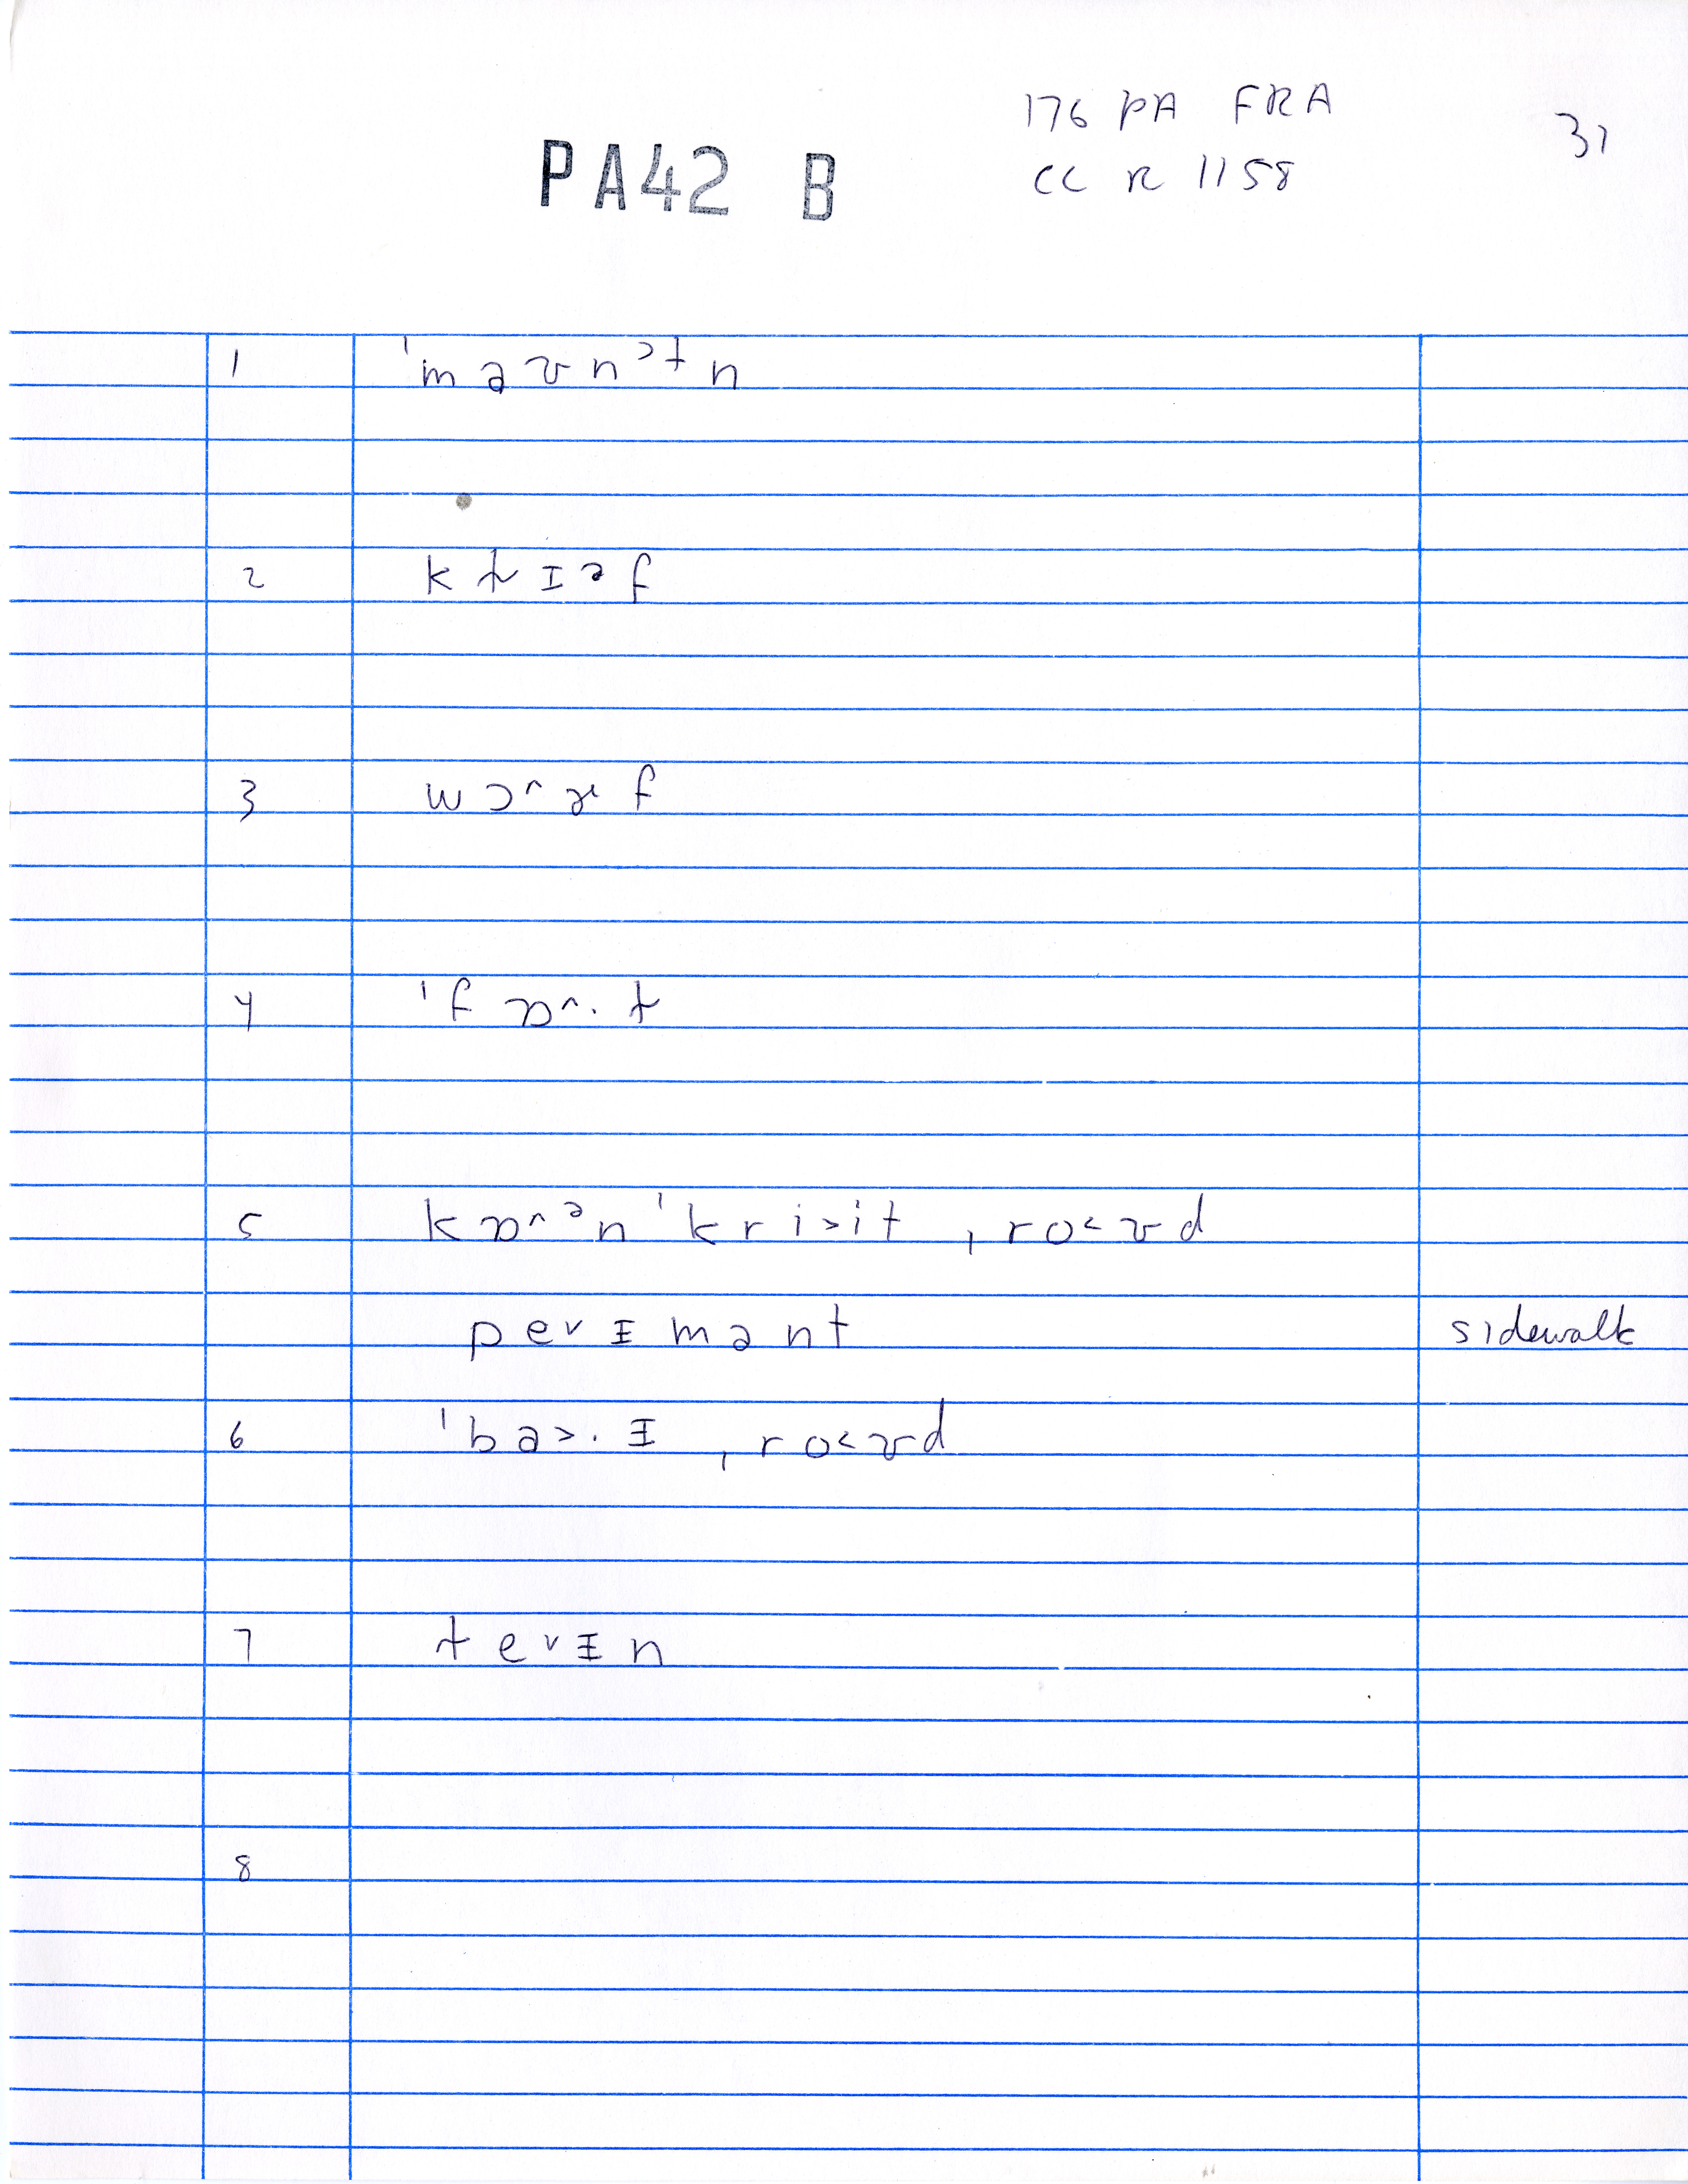 176 PA FRA
31
PA42 B
CC R 1158
1 ˈm a ʊ n ᵊt n
2 k ɫ ɪ ə f
3 w ɔ^ ɚ f
4 ˈf ɒ^. t
5 k ɒ^ ᵊn ˈk r i>i t ˌr o< ʊ d
p e v ɪ m ə n t sidewalk
6 ˈb a>. ɪ ˌr o< ʊ d
7 t e v ɪ n
8